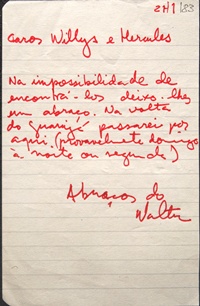 2H1 183
Caros Willys e Hercules
Na impossibilidade de
encontrá-los deixo-lhes
um abraço. Na volta
do Guarujá passarei por
aqui (provavelmente domingo
à noite ou segunda)
Abraços do
Walter